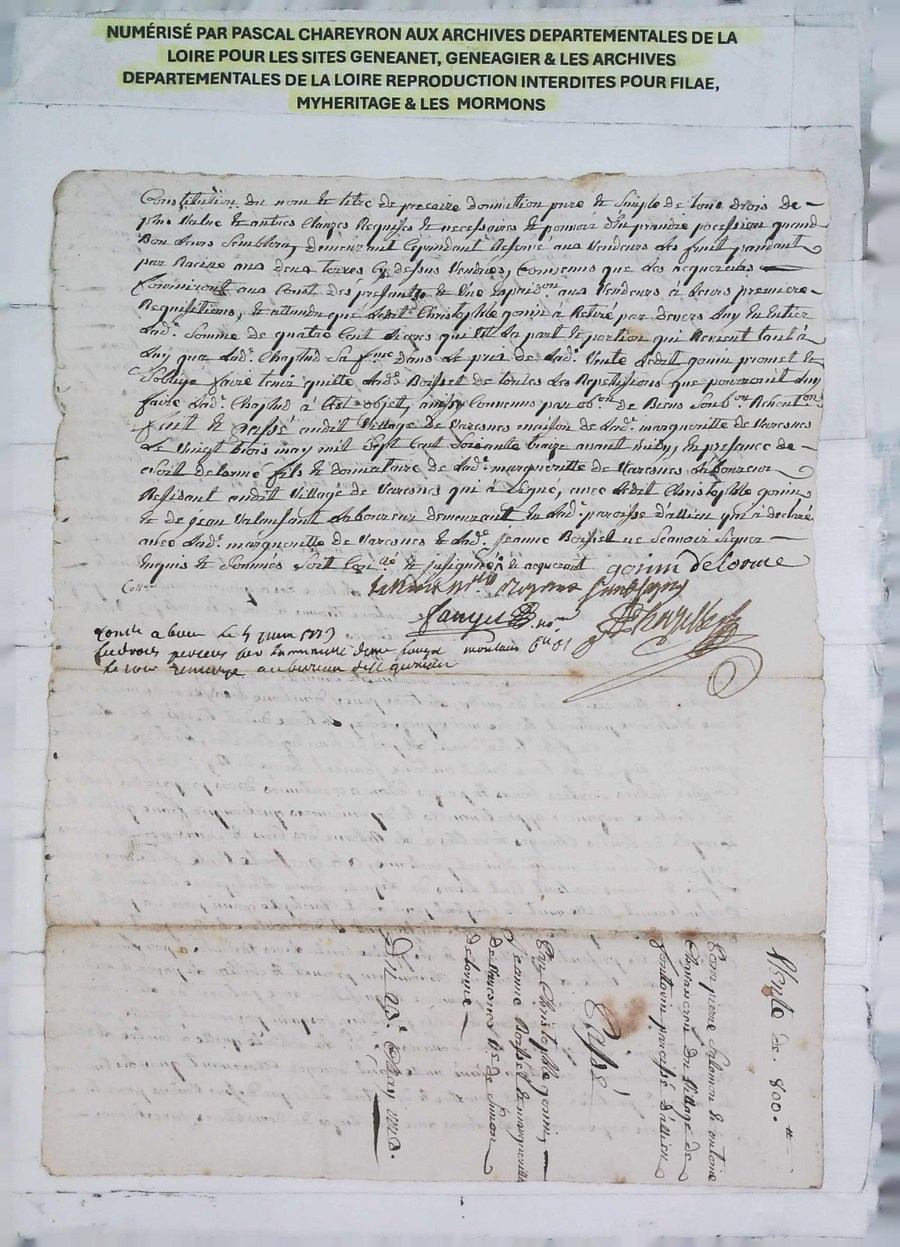 NUMÉRISÉ PAR PASCAL CHAREYRON AUX ARCHIVES DEPARTEMENTALES DE LA
LOIRE POUR LES SITES GENEANET, GENEAGIER & LES ARCHIVES
DEPARTEMENTALES DE LA LOIRE REPRODUCTION INTERDITES POUR FILAE,
MYHERITAGE & LES MORMONS
Constitution du nom & titre de precaire donnation pure & Simple de tous Drois de
plus Value & autres Clauzes Requises & necessaires & pouvoir d'en prandre pocession quand
Bon Leurs Semblera, demeurant Cependant Reservé aux Vendeurs Les fruit pandant
par Racine aux deux terres Cy dessus Vendües, Convenus que Les acquereurs
fourniront aux Cout des presantes & Une Exped.on aux Vendeurs à Leurs premiere
Requisitions, & attandu que Ledit Christophle gonin à Retiré par devers Luy En Entier
Lad.e Somme de quatre Cent Livres qui Est La part & portion qui Revient tant à
Luy qua Lad.e Chaptud Sa f.me dans Le prix de Lad.e Vente Ledit gonin promet &
S'oblige faire tenir quitte Lad.e Boisset de toutes Les Repetissions que pouroient Luy
faire Lad.e Chaptud à Cet objet, ainsy Convenus par ob.on de Biens Soub.on Renont.on
fait & passé audit Village de Varesnes maison de Lad.e margueritte de Varesnes
Le Vingt trois may mil Sept Cent Soixante treize avant midy, En presance de
Delorme fils & donnataire de Lad.e margueritte de Varesnes Laboureur
Residant audit Village de Varesnes qui à Signé, avec Ledit Christophle gonin
& de jean Valensant Laboureur demeurant En Lad.e paroisse d'allieu qui à declaré
avec Lad.e margueritte de Varesnes & Lad.e Jeanne Boisset ne Scavoir Signer
Enquis & Sommés Soit Con.llé & insignué, & acquereurs gonin Delorme
Coll.né
le 5 juin 1773
de au bureau
Vente de. 800.tt
Pour pierre Salomon & antoine
du Village de
paroisse d'allieu
Passé
Par Christophle gonin,
Jeanne Boisset & margueritte
de Varesnes V.e de Simon
delorme
Du 23.e May 1773.